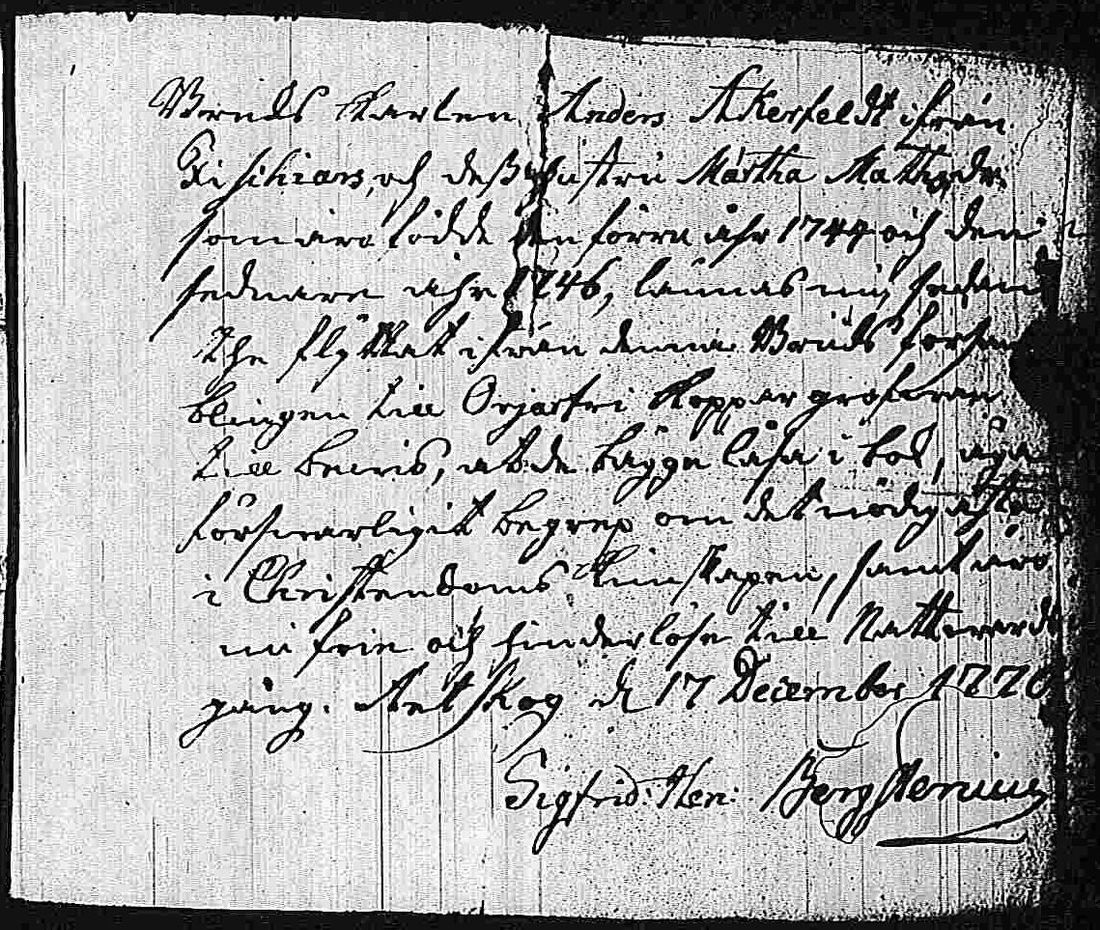 Bruks Karlen Anders Åkerfeldt ifrån
Fiskars, och dess hustru Märtha Mathsdr.
som äro födde den förre åhr 1744 och den
sednare åhr 1746, lämnas nu, sedan
the flÿttat ifrån denna Bruks försam
blingen till Orjärfvi Koppar grufvan
till bevis, at de bägge läsa i bok, äga
försvarligit begrep om det nödigaste
i Christendoms Kunskapen, samt äro
nu frie och hinderlöse till Nattvards
gång. Antskog d 17 December 1770
Sigfrid: Hen: Bergstenius